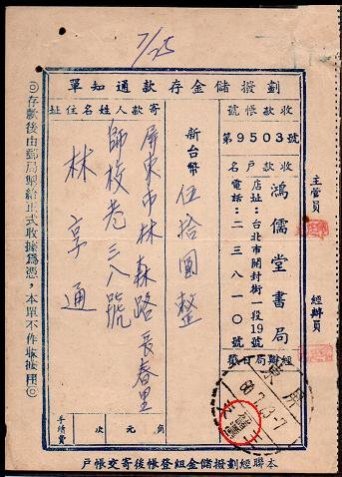 7/25
劃撥儲金存款通知單
收款帳號
第9503號
收款戶名
鴻儒堂書局
店址：台北市開封街一段19號
電話：二三八一〇號
經辦局日戳
新台幣伍拾圓整
寄款人姓名住址
屏東市林森路長春里
師校巷三八號
林享通
手續費
次
元
角
主管員
經辦員
◎存款後由郵局掣給正式收據為憑，本單不作收據用◎
本聯經劃撥儲金組登帳後寄交帳戶